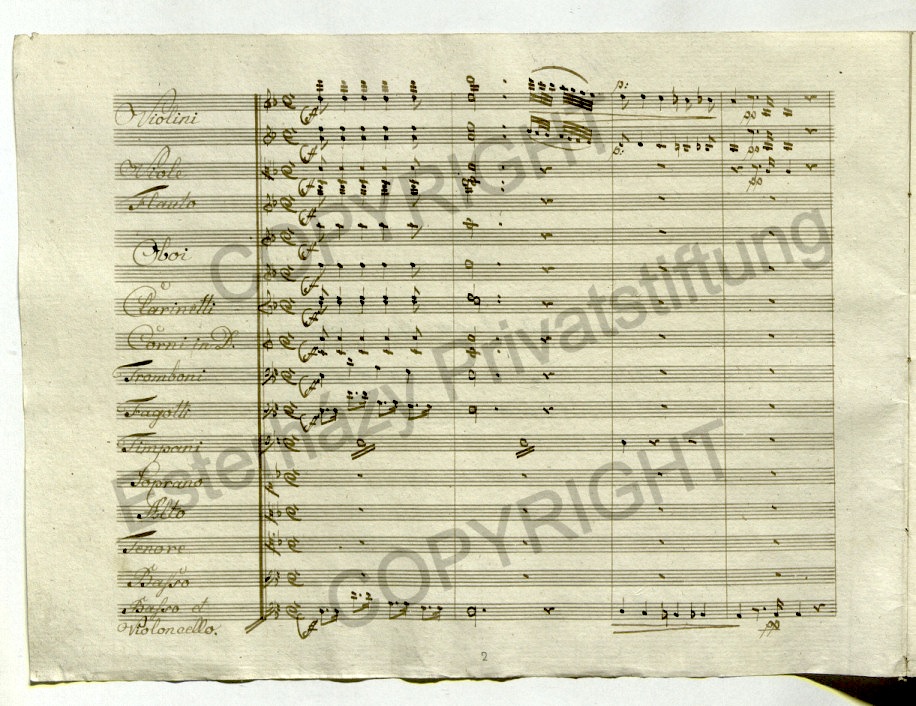 Violini
Viole
Flauto
Oboi
Clarinetti
Corni in D.
Tromboni
Fagotti
Timpani
Soprano
Alto
Tenore
Basso
Basso et
Violoncello.
p:
p:
pp
pp
pp
pp
2
COPYRIGHT
Esterházy Privatstiftung
COPYRIGHT